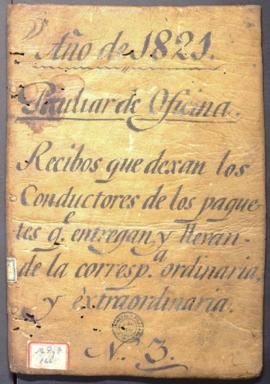 Año de 1821.
Peculiar de Oficina.
Recibos que dexan los
Conductores de los paque
tes q.e entregan, y llevan
de la corresp.a ordinaria,
y extraordinaria.
N. 3.